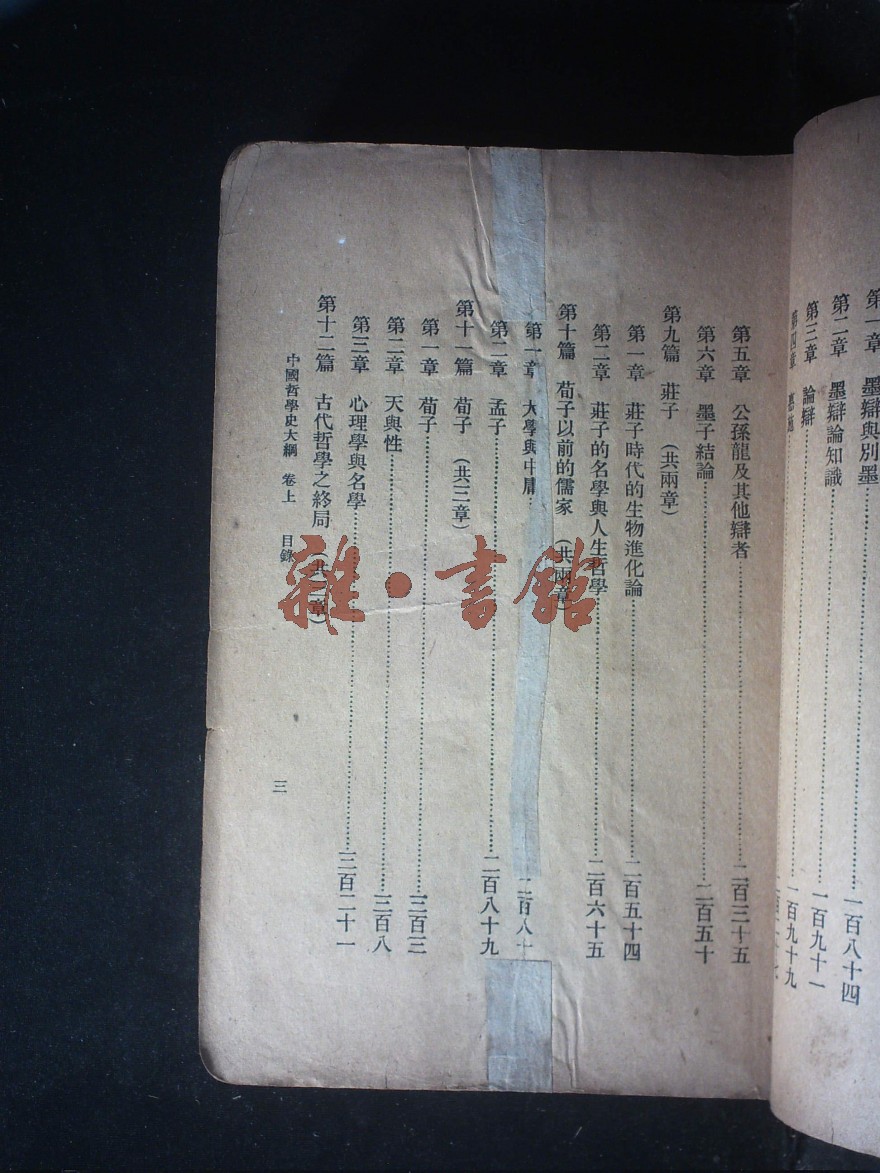 第一章 墨辯與別墨……一百八十四
第二章 墨辯論知識……一百九十一
第三章 論辯……一百九十九
第四章
第五章 公孫龍及其他辯者……二百三十五
第六章 墨子結論……二百五十
第九篇 莊子 (共兩章)
第一章 莊子時代的生物進化論……二百五十四
第二章 莊子的名學與人生哲學……二百六十五
第十篇 荀子以前的儒家 (共兩章)
第一章 大學與中庸……二百八十
第二章 孟子……二百八十九
第十一篇 荀子 (共三章)
第一章 荀子……三百三
第二章 天與性……三百八
第三章 心理學與名學……三百二十一
第十二篇 古代哲學之終局 (共 章)
中國哲學史大綱 卷上 目錄 三
雜·書館